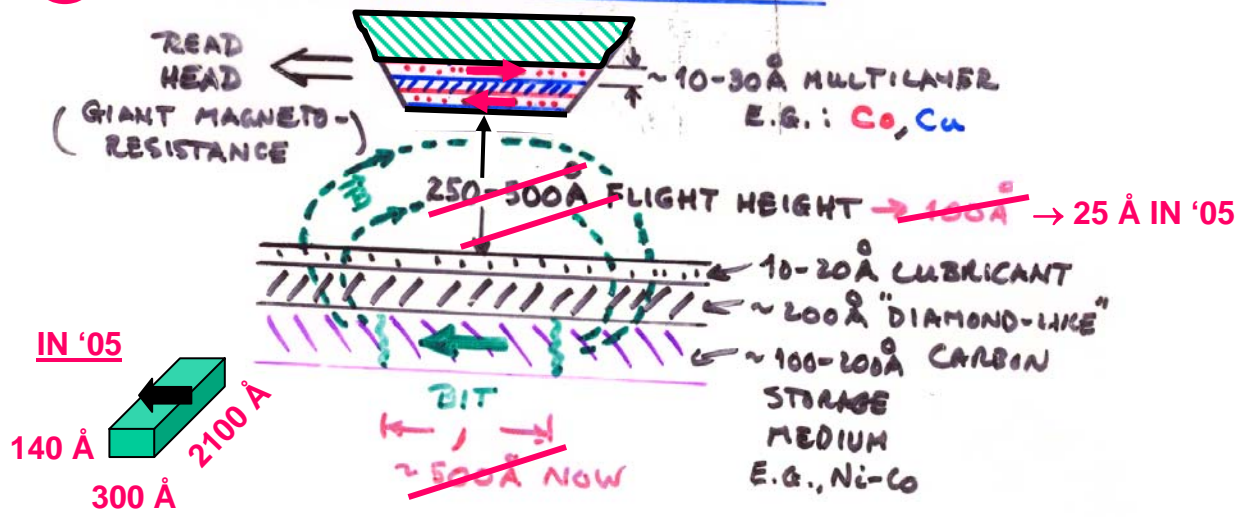 READ
HEAD
(GIANT MAGNETO-
RESISTANCE)
~10-30Å MULTILAYER
E.G.: Co, Cu
B
250-500Å FLIGHT HEIGHT → 100Å → 25 Å IN ‘05
10-20Å LUBRICANT
~200Å "DIAMOND-LIKE"
CARBON
~100-200Å
STORAGE
MEDIUM
E.G., Ni-Co
BIT
~500Å NOW
IN ‘05
140 Å
2100 Å
300 Å